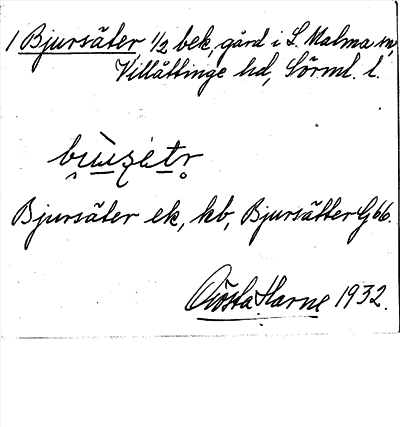 1 Bjursäter, 1/2 bek, gård i L. Malma sn,
Villåttinge hd, Sörml. l.
Bjursäter ek, kb, Bjursätter G 66.
Gösta Harne 1932.